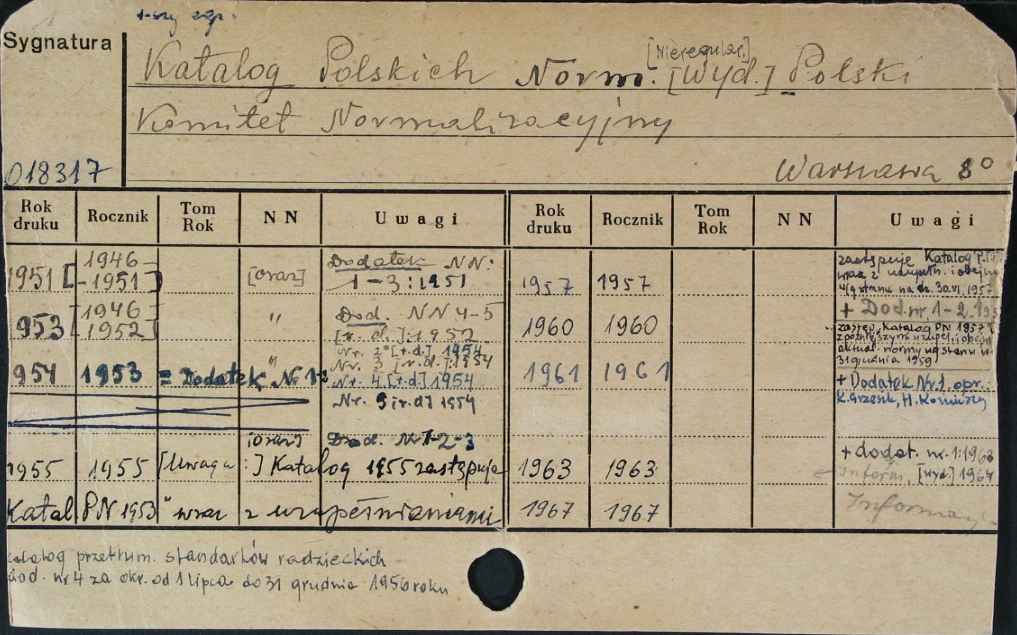 1-szy egz.
Sygnatura
Katalog Polskich Norm. [Nieregular.] [Wyd.] Polski
Komitet Normalizacyjny
018317 Warszawa 8°
Rok druku Rocznik Tom Rok NN Uwagi Rok druku Rocznik Tom Rok NN Uwagi
1951 [1946-1951] [oraz] Dodatek NN: 1-3: 1951
953 [1946 1952] " Dod. NN 4-5 [r. d.]: 1952
954 1953 = Dodatek Nr 1-2 "
[r.d.] 1954
Nr. 3 [r.d.]: 1954
Nr. 4 [r.d.] 1954
Nr. 5 [r.d.] 1954
[oraz] Dod. N 1-2-3
1955 1955 [Uwaga:] Katalog 1955 zastępuje
Katal PN 1953" wraz z uzupełnieniami
1957 1957 zastępuje Katalog
wraz z
wg stanu na dz. 30.VI.1957
+ Dod. nr. 1-2
1960 1960 zastęp. Katalog PN 1957
z późniejszymi uzupeł. i
aktual. normy wg stanu
31 grudnia 1959
1961 1961 + Dodatek Nr. 1. opr.:
K. Grzesik, H.
1963 1963 + dodat. nr. 1: 1963
Inform. [wyd.] 1964
1967 1967
Katalog przetłum. standartów radzieckich
dod. nr 4 za okr. od 1 lipca do 31 grudnia 1956 roku